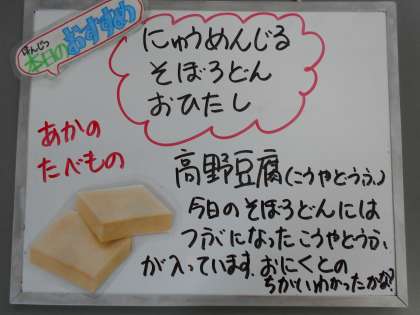 ほんじつ
本日のおすすめ
にゅうめんじる
そぼろどん
おひたし
あかの
たべもの
高野豆腐(こうやとうふ)
今日のそぼろどんには
つぶになったこうやとうふ
が入っています。おにくとの
ちがいわかったかな?